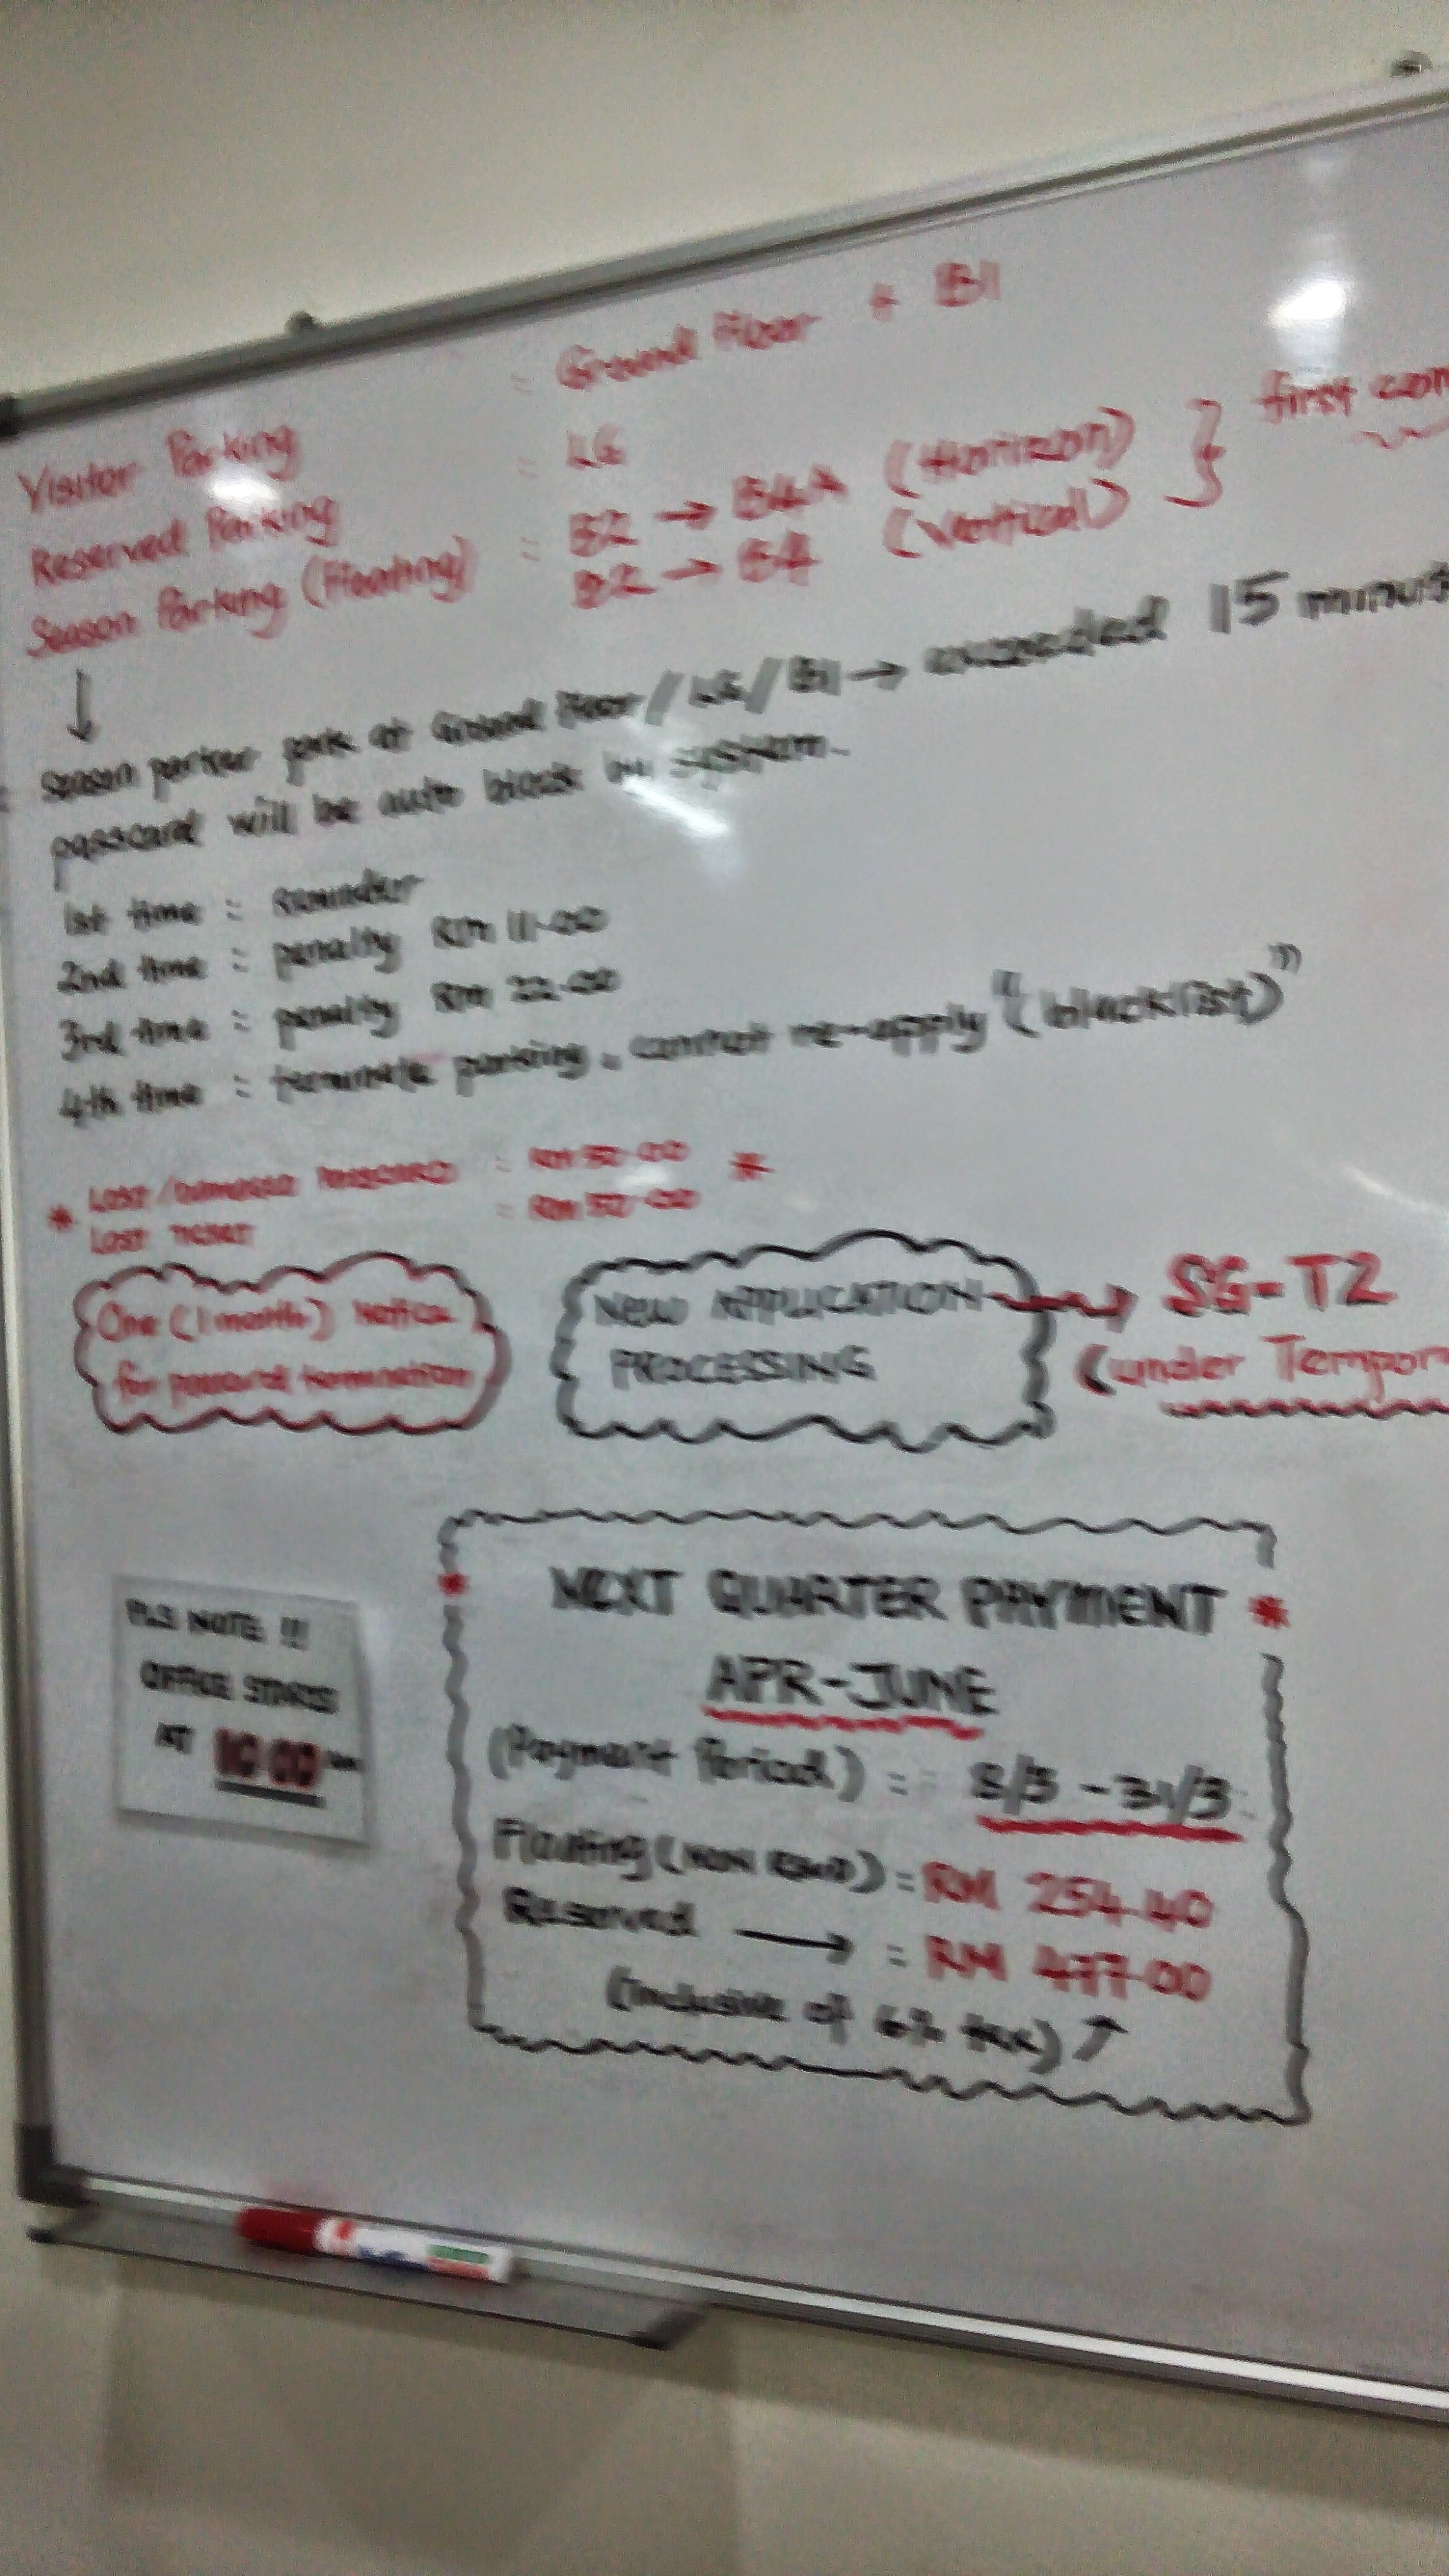 Visitor Parking : Ground Floor + B1
Reserved Parking : LG
Season Parking (Floating) : B2 → B4A (Horizon) } first com
B2 → B4 (Vertical)
↓
Season parker park at Ground Floor / LG / B1 → exceeded 15 minut
passcard will be auto block by system.
1st time : Reminder
2nd time : penalty RM 11.00
3rd time : penalty RM 22.00
4th time : terminate parking, cannot re-apply "(blacklist)"
* Lost / Damaged Passcard : RM 50.00 *
Lost Ticket : RM 50.00
One (1 month) Notice
for passcard termination
NEW APPLICATION → SG-T2
PROCESSING
(under Tempor
PLS NOTE !!!
OFFICE STARTS
AT 10.00 am
* NEXT QUARTER PAYMENT *
APR-JUNE
(Payment Period) : - 31/3
Floating (NON) = RM 254.40
Reserved → : RM 477.00
(Inclusive of 6% tax) ↑